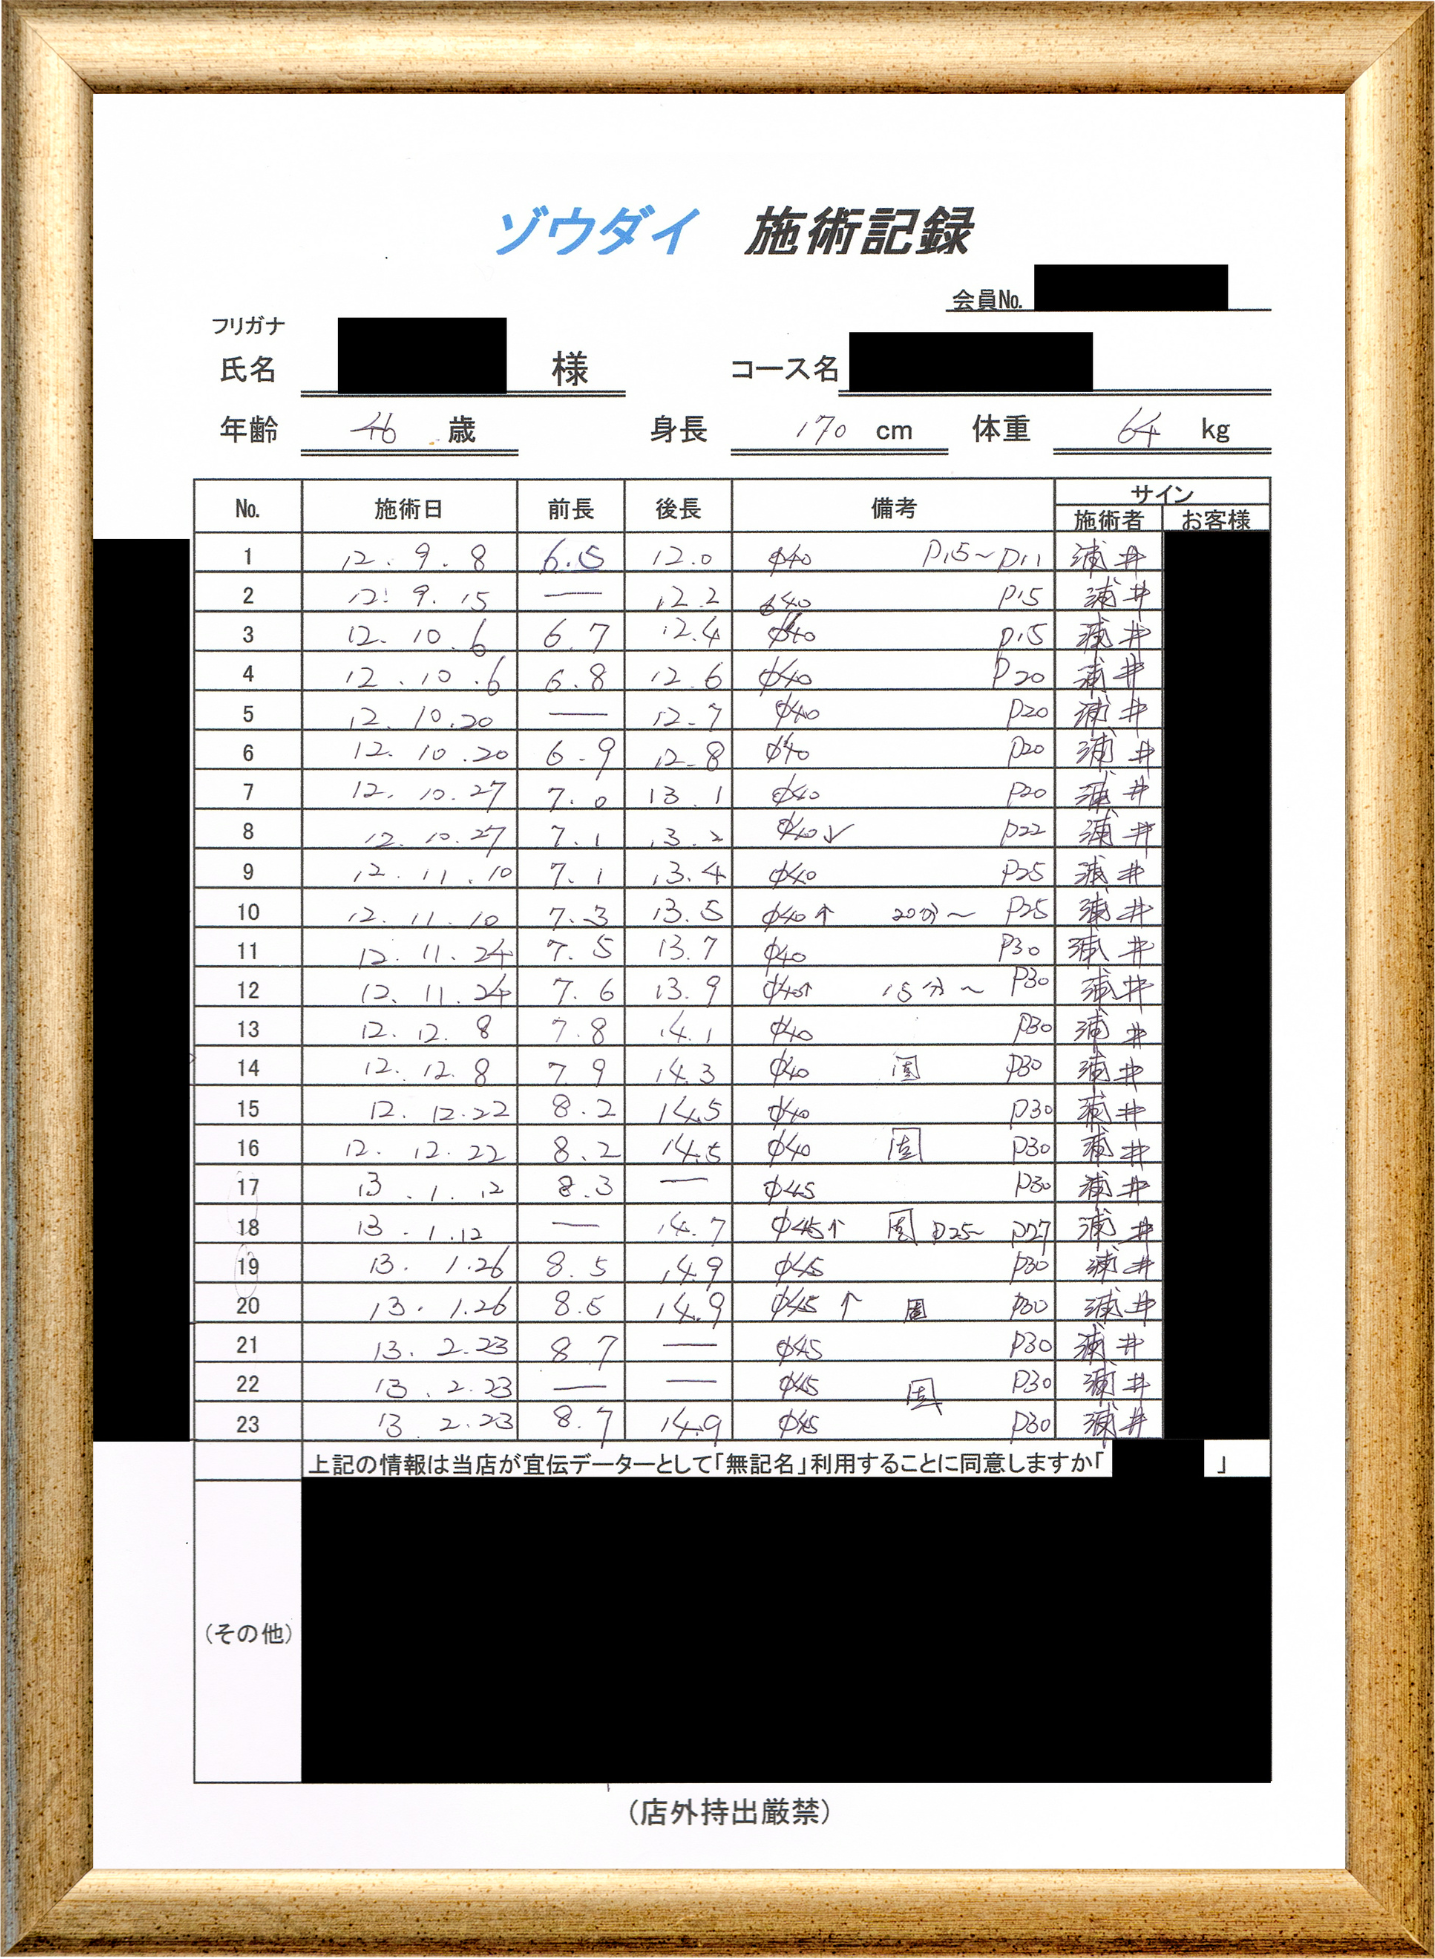 ゾウダイ 施術記録
会員No.
フリガナ
氏名 様 コース名
年齢 46 歳 身長 170 cm 体重 64 kg
No. 施術日 前長 後長 備考 サイン
施術者 お客様
1 12. 9. 8 6.5 12.0 φ40 P15~P11 浦井
2 12. 9. 15 — 12.2 φ40 P15 浦井
3 12. 10. 6 6.7 12.4 φ40 P15 浦井
4 12. 10. 6 6.8 12.6 φ40 P20 浦井
5 12. 10. 20 — 12.7 φ40 P20 浦井
6 12. 10. 20 6.9 12.8 φ40 P20 浦井
7 12. 10. 27 7.0 13.1 φ40 P20 浦井
8 12. 10. 27 7.1 13.2 φ40↓ P22 浦井
9 12. 11. 10 7.1 13.4 φ40 P25 浦井
10 12. 11. 10 7.3 13.5 φ40↑ 20分~ P25 浦井
11 12. 11. 24 7.5 13.7 φ40 P30 浦井
12 12. 11. 24 7.6 13.9 φ40↑ 15分~ P30 浦井
13 12. 12. 8 7.8 14.1 φ40 P30 浦井
14 12. 12. 8 7.9 14.3 φ40 固 P30 浦井
15 12. 12. 22 8.2 14.5 φ40 P30 浦井
16 12. 12. 22 8.2 14.5 φ40 固 P30 浦井
17 13. 1. 12 8.3 — φ45 P30 浦井
18 13. 1. 12 — 14.7 φ45↑ 固 P25~P27 浦井
19 13. 1. 26 8.5 14.9 φ45 P30 浦井
20 13. 1. 26 8.5 14.9 φ45↑ 固 P30 浦井
21 13. 2. 23 8.7 — φ45 P30 浦井
22 13. 2. 23 — — φ45 固 P30 浦井
23 13. 2. 23 8.7 14.9 φ45 P30 浦井
上記の情報は当店が宣伝データーとして「無記名」利用することに同意しますか「 」
(その他)
(店外持出厳禁)